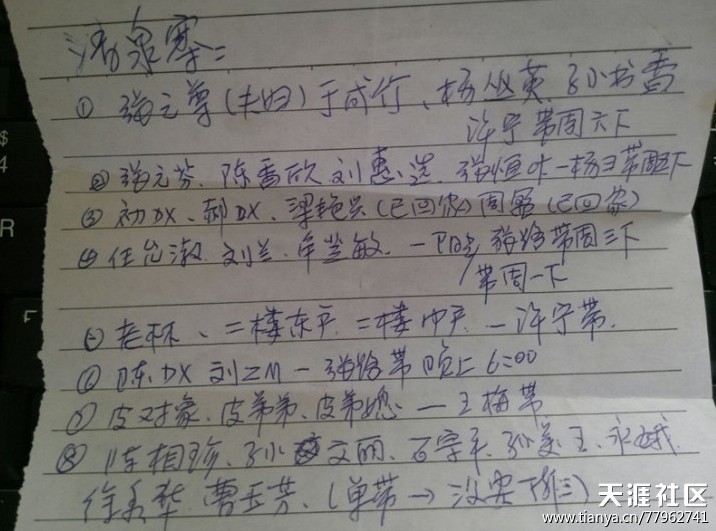 清泉寨:
① 张元尊(夫妇)于成竹、杨丛英 孙小书香
许宁带周六下
② 张元芬、陈香欣 刘惠选 张恒 一杨 带周 下
③ 初DX、郝DX、梁艳 (已回家)周 (已回家)
④ 任 淑、刘兰、牟 敏、一 张 带周三下
带周一下
⑤ 老林、二楼东户 二楼中户 一许宁带.
⑥ 陈DX 刘ZM一 张 带晚上6:00
⑦ 皮对象、皮弟弟、皮弟媳 — 王梅带
⑧ 陈相珍、孙 文丽、石字平、孙美玉、永娥、
徐秀华、曹玉芳、(单带→没安排)
$
4
R
F
天涯社区
www.tianya.cn/77962741